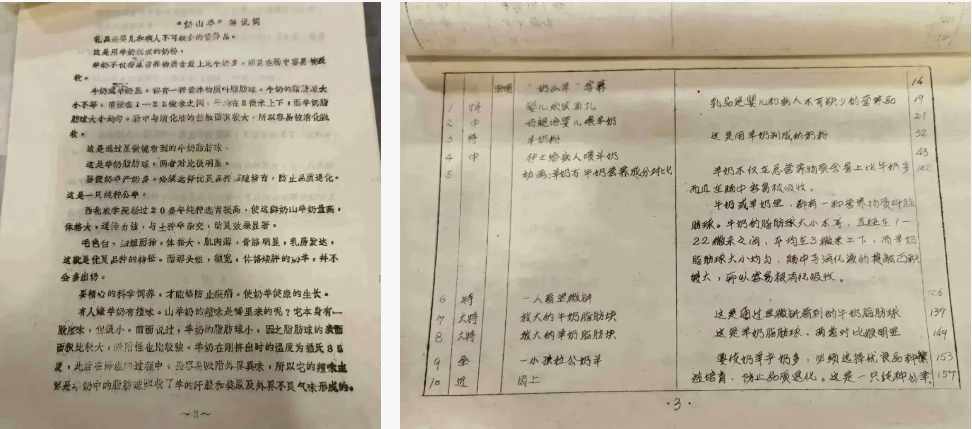 "奶山羊"解说词
乳品是婴儿和病人不可缺少的营养品。
这是用羊奶制成的奶粉。
羊奶不仅在总营养物质含量上比牛奶多，而且在肠中容易被吸
收。
牛奶或羊奶里，都有一种营养物质叫脂肪球。牛奶的脂肪球大
小不等，直径在1—22微米之间，平均在3微米上下；而羊奶脂
肪球大小均匀。肠中与消化液的接触面积较大，所以容易被消化吸
收。
这是通过显微镜看到的牛奶脂肪球。
这是羊奶脂肪球，两者对比很明显。
要使奶羊产奶多，必须选择优良品种繁殖培育，防止品质退化。
这是一只纯种公羊。
西北农学院经过20多年纯种选育提高，使这群奶山羊奶量高，
体格大，遗传力强，与土种羊杂交，改良效果显著。
毛色白，体格大，肌肉薄，骨骼明显，乳房发达，
这就是优良品种的特征。而那头粗，额宽，体格矮胖的奶羊，并不
会多出奶。
要精心的科学饲养，才能够防止疾病。使奶羊健康的生长。
有人嫌羊奶有膻味。山羊奶的膻味是哪里来的呢？它本身有一
股膻味，但很小。前面说过，羊奶的脂肪球小，因此脂肪球的表面
面积比较大，吸附性也比较强。羊奶在刚挤出时的温度为摄氏38
度，此后在降温的过程中，最容易吸附外界异味，所以它的膻味主
要是羊奶中的脂肪球吸收了羊的汗腺和粪尿及外界不良气味形成的。
～2～
"奶山羊" 字幕 14
1 特 婴儿欢笑面孔 乳品是婴儿和病人不可缺少的营养品 19
2 中 母親给婴儿喂羊奶 21
3 特 羊奶粉 这是用羊奶制成的奶粉 32
4 中 护士给病人喂羊奶 43
5 动画：羊奶与牛奶营养成分对比 羊奶不仅在总营养物质含量上比牛奶多
而且在肠中容易被吸收。
牛奶或羊奶里，都有一种营养物质叫脂
肪球。牛奶的脂肪球大小不等，直径在1—
22微米之间，平均在3微米上下，而羊奶
脂肪球大小均匀，肠中与消化液的接触面积
较大，所以容易被消化吸收。
6 特 一人看显微镜 126
7 大特 放大的牛奶脂肪球 这是通过显微镜看到的牛奶脂肪球 139
8 大特 放大的羊奶脂肪球 这是羊奶脂肪球，两者对比很明显 149
9 全 一小孩拉公奶羊 要使奶羊产奶多，必须选择优良品种繁 153
10 近 同上 殖培育，防止品质退化。这是一只纯种公羊 157
·3·